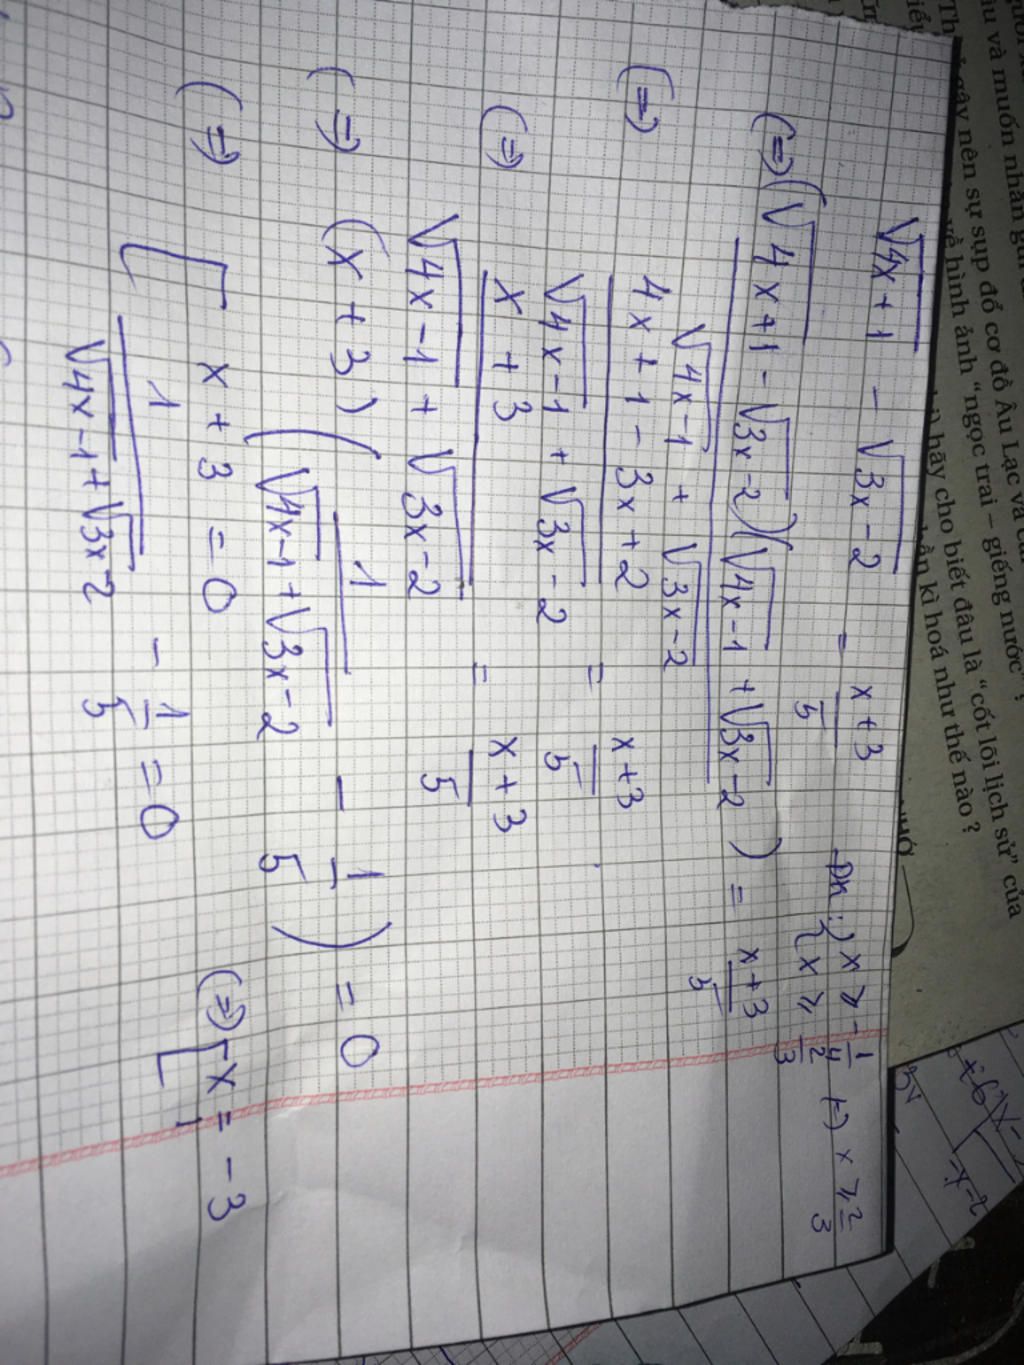 √4x+1 - √3x-2 = x+3/5 ĐK: { x ≥ -1/4 { x ≥ 2/3 (=) x ≥ 2/3
(=) (√4x+1 - √3x-2)(√4x-1 + √3x-2) / √4x-1 + √3x-2 = x+3/5
(=) 4x+1-3x+2 / √4x-1 + √3x-2 = x+3/5
(=) x+3 / √4x-1 + √3x-2 = x+3/5
(=) (x+3)(1/√4x-1+√3x-2 - 1/5) = 0
(=) [ x+3 = 0 (=) [ x = -3
1/√4x-1+√3x-2 - 1/5 = 0
gây nên sự sụp đổ cơ đồ Âu Lạc và
về hình ảnh “ngọc trai – giếng nước” ?
hãy cho biết đâu là “cốt lõi lịch sử” của
kì hoá như thế nào ?